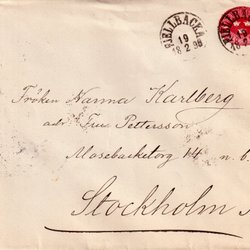 FJELLBACKA
19
18 2 96
FJELLBACKA
19
Fröken Nanna Karlberg
adr. Fru Pettersson
Mosebacketorg 14 n. b.
Stockholm